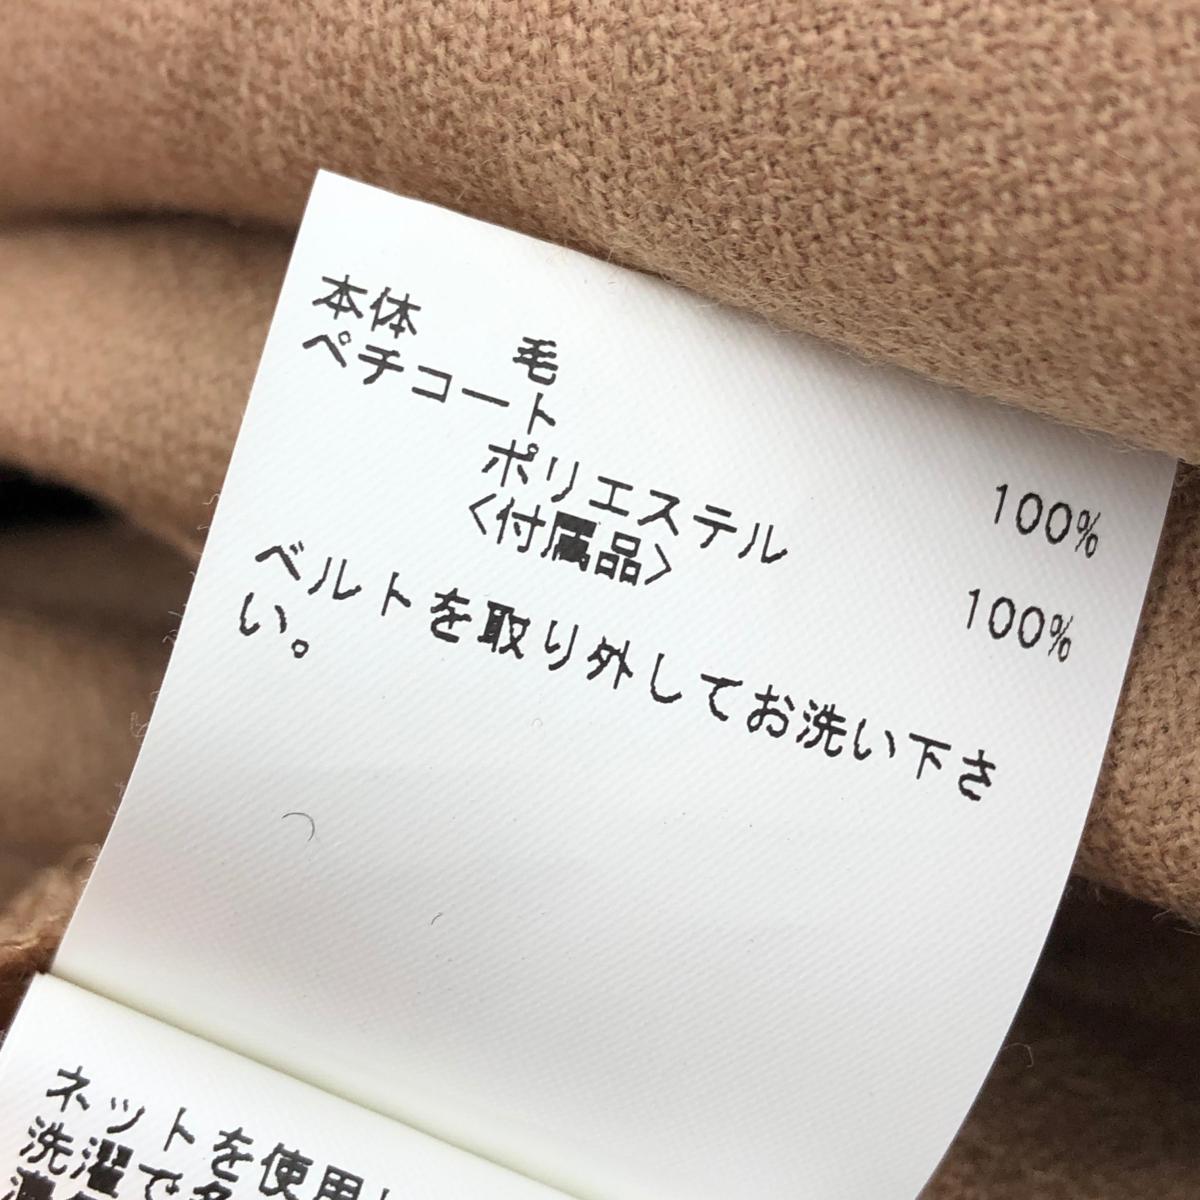 本体 毛 100%
ペチコート
ポリエステル 100%
<付属品>
ベルトを取り外してお洗い下さ
い。
ネットを使用
洗濯で